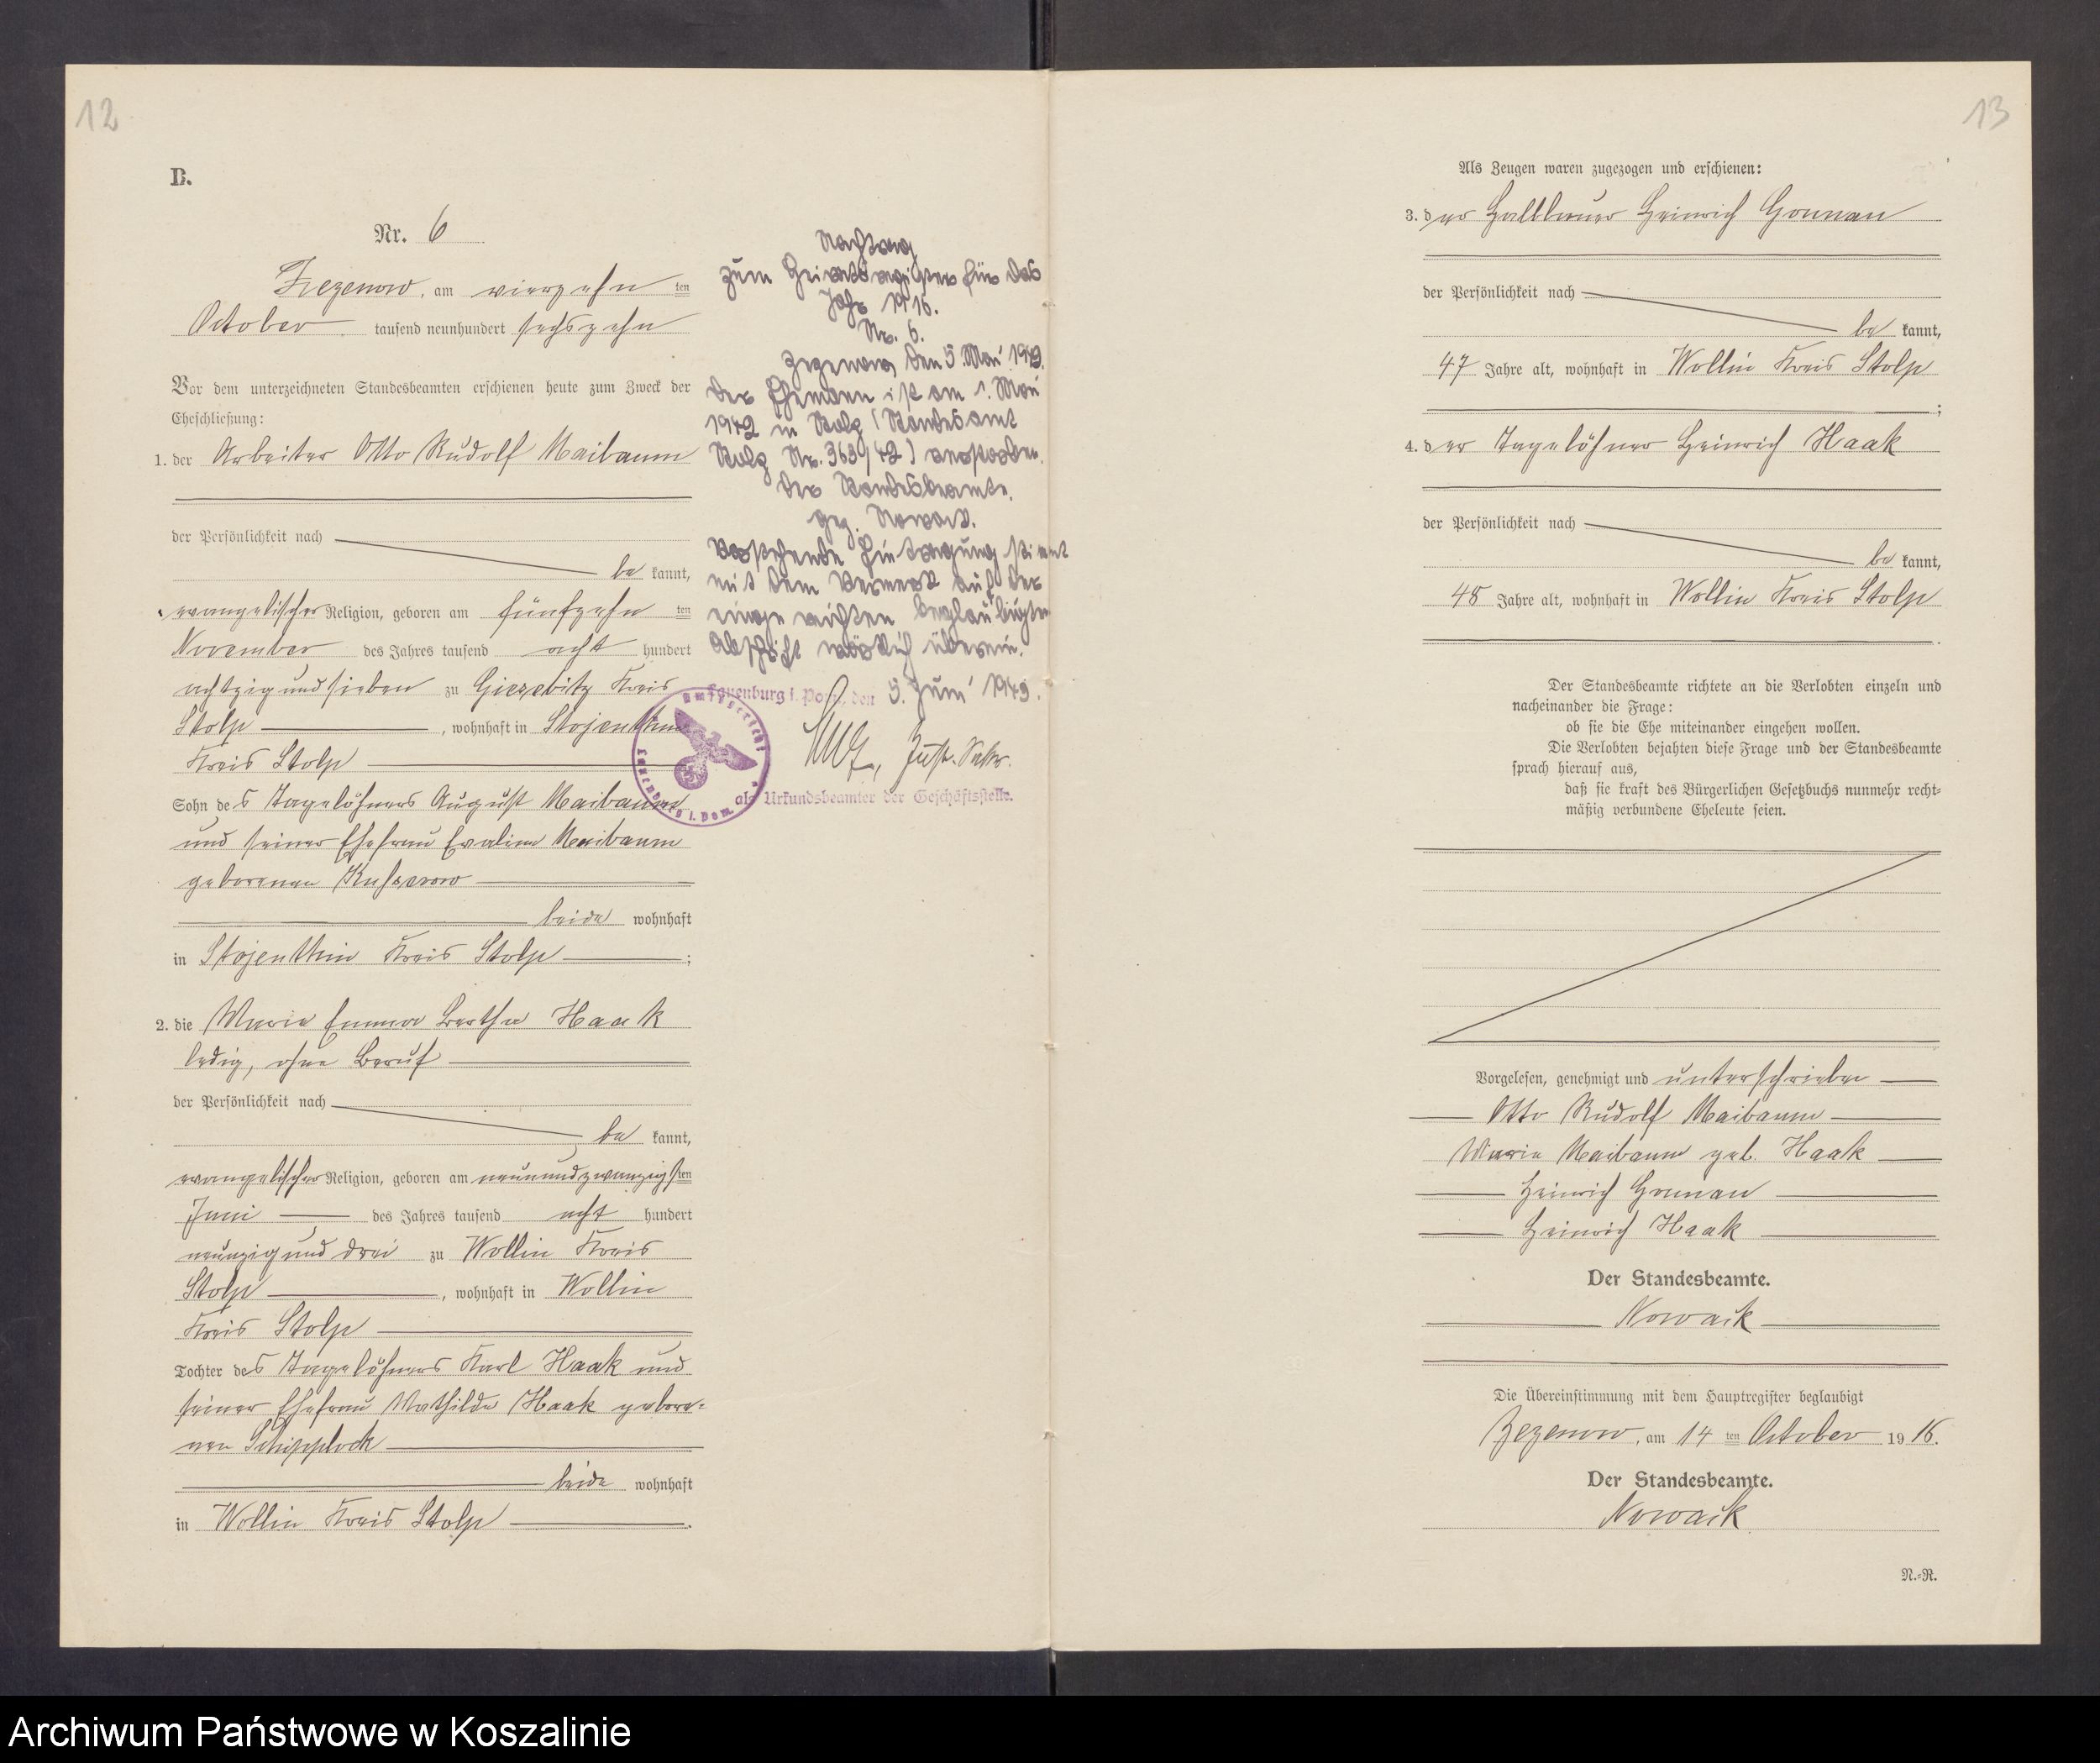 12
B.
Nr. 6
Zezenow, am vierzehn ten
October tausend neunhundert sechszehn
Vor dem unterzeichneten Standesbeamten erschienen heute zum Zweck der
Eheschließung:
1. der Arbeiter Otto Rudolf Maibaum
der Persönlichkeit nach
be kannt,
evangelischer Religion, geboren am fünfzehn ten
November des Jahres tausend acht hundert
achtzig und sieben zu Giesebitz Kreis
Stolp, wohnhaft in Stojenthin
Kreis Stolp
Sohn des Tagelöhners August Maibaum
und seiner Ehefrau Evaline Maibaum
geborenen Kusserow
beide wohnhaft
in Stojenthin Kreis Stolp;
2. die Marie Emma Bertha Haak
ledig, ohne Beruf
der Persönlichkeit nach
be kannt,
evangelischer Religion, geboren am neunundzwanzigsten
Juni des Jahres tausend acht hundert
neunzig und drei zu Wollin Kreis
Stolp, wohnhaft in Wollin
Kreis Stolp
Tochter des Tagelöhners Karl Haak und
seiner Ehefrau Mathilde Haak gebore-
nen Schipplock
beide wohnhaft
in Wollin Kreis Stolp.
Nachtrag
zum Heiratsregister für das
Jahr 1916.
Nr. 6.
Zezenow, den 5. Mai 1943.
Der Ehemann ist am 1. Mai
1942 in Stolp (Standesamt
Stolp Nr. 363/42) verstorben.
Der Standesbeamte.
gez. Nowack.
Vorstehende Eintragung stimmt
mit dem Vermerk auf der
eingereichten beglaubigten
Abschrift wörtlich überein.
Lauenburg i. Pom., den 3. Juni 1943.
Just. Sekr.
als Urkundsbeamter der Geschäftsstelle.
Amtsgericht
Lauenburg i. Pom.
13
Als Zeugen waren zugezogen und erschienen:
3. der Halbbauer Heinrich Gonnan
der Persönlichkeit nach
be kannt,
47 Jahre alt, wohnhaft in Wollin Kreis Stolp
;
4. der Tagelöhner Heinrich Haak
der Persönlichkeit nach
be kannt,
48 Jahre alt, wohnhaft in Wollin Kreis Stolp
.
Der Standesbeamte richtete an die Verlobten einzeln und
nacheinander die Frage:
ob sie die Ehe miteinander eingehen wollen.
Die Verlobten bejahten diese Frage und der Standesbeamte
sprach hierauf aus,
daß sie kraft des Bürgerlichen Gesetzbuchs nunmehr recht-
mäßig verbundene Eheleute seien.
Vorgelesen, genehmigt und unterschrieben
Otto Rudolf Maibaum
Marie Maibaum geb. Haak
Heinrich Gonnan
Heinrich Haak
Der Standesbeamte.
Nowack
Die Übereinstimmung mit dem Hauptregister beglaubigt
Zezenow, am 14 ten October 19 16.
Der Standesbeamte.
Nowack
N.-R.
Archiwum Państwowe w Koszalinie